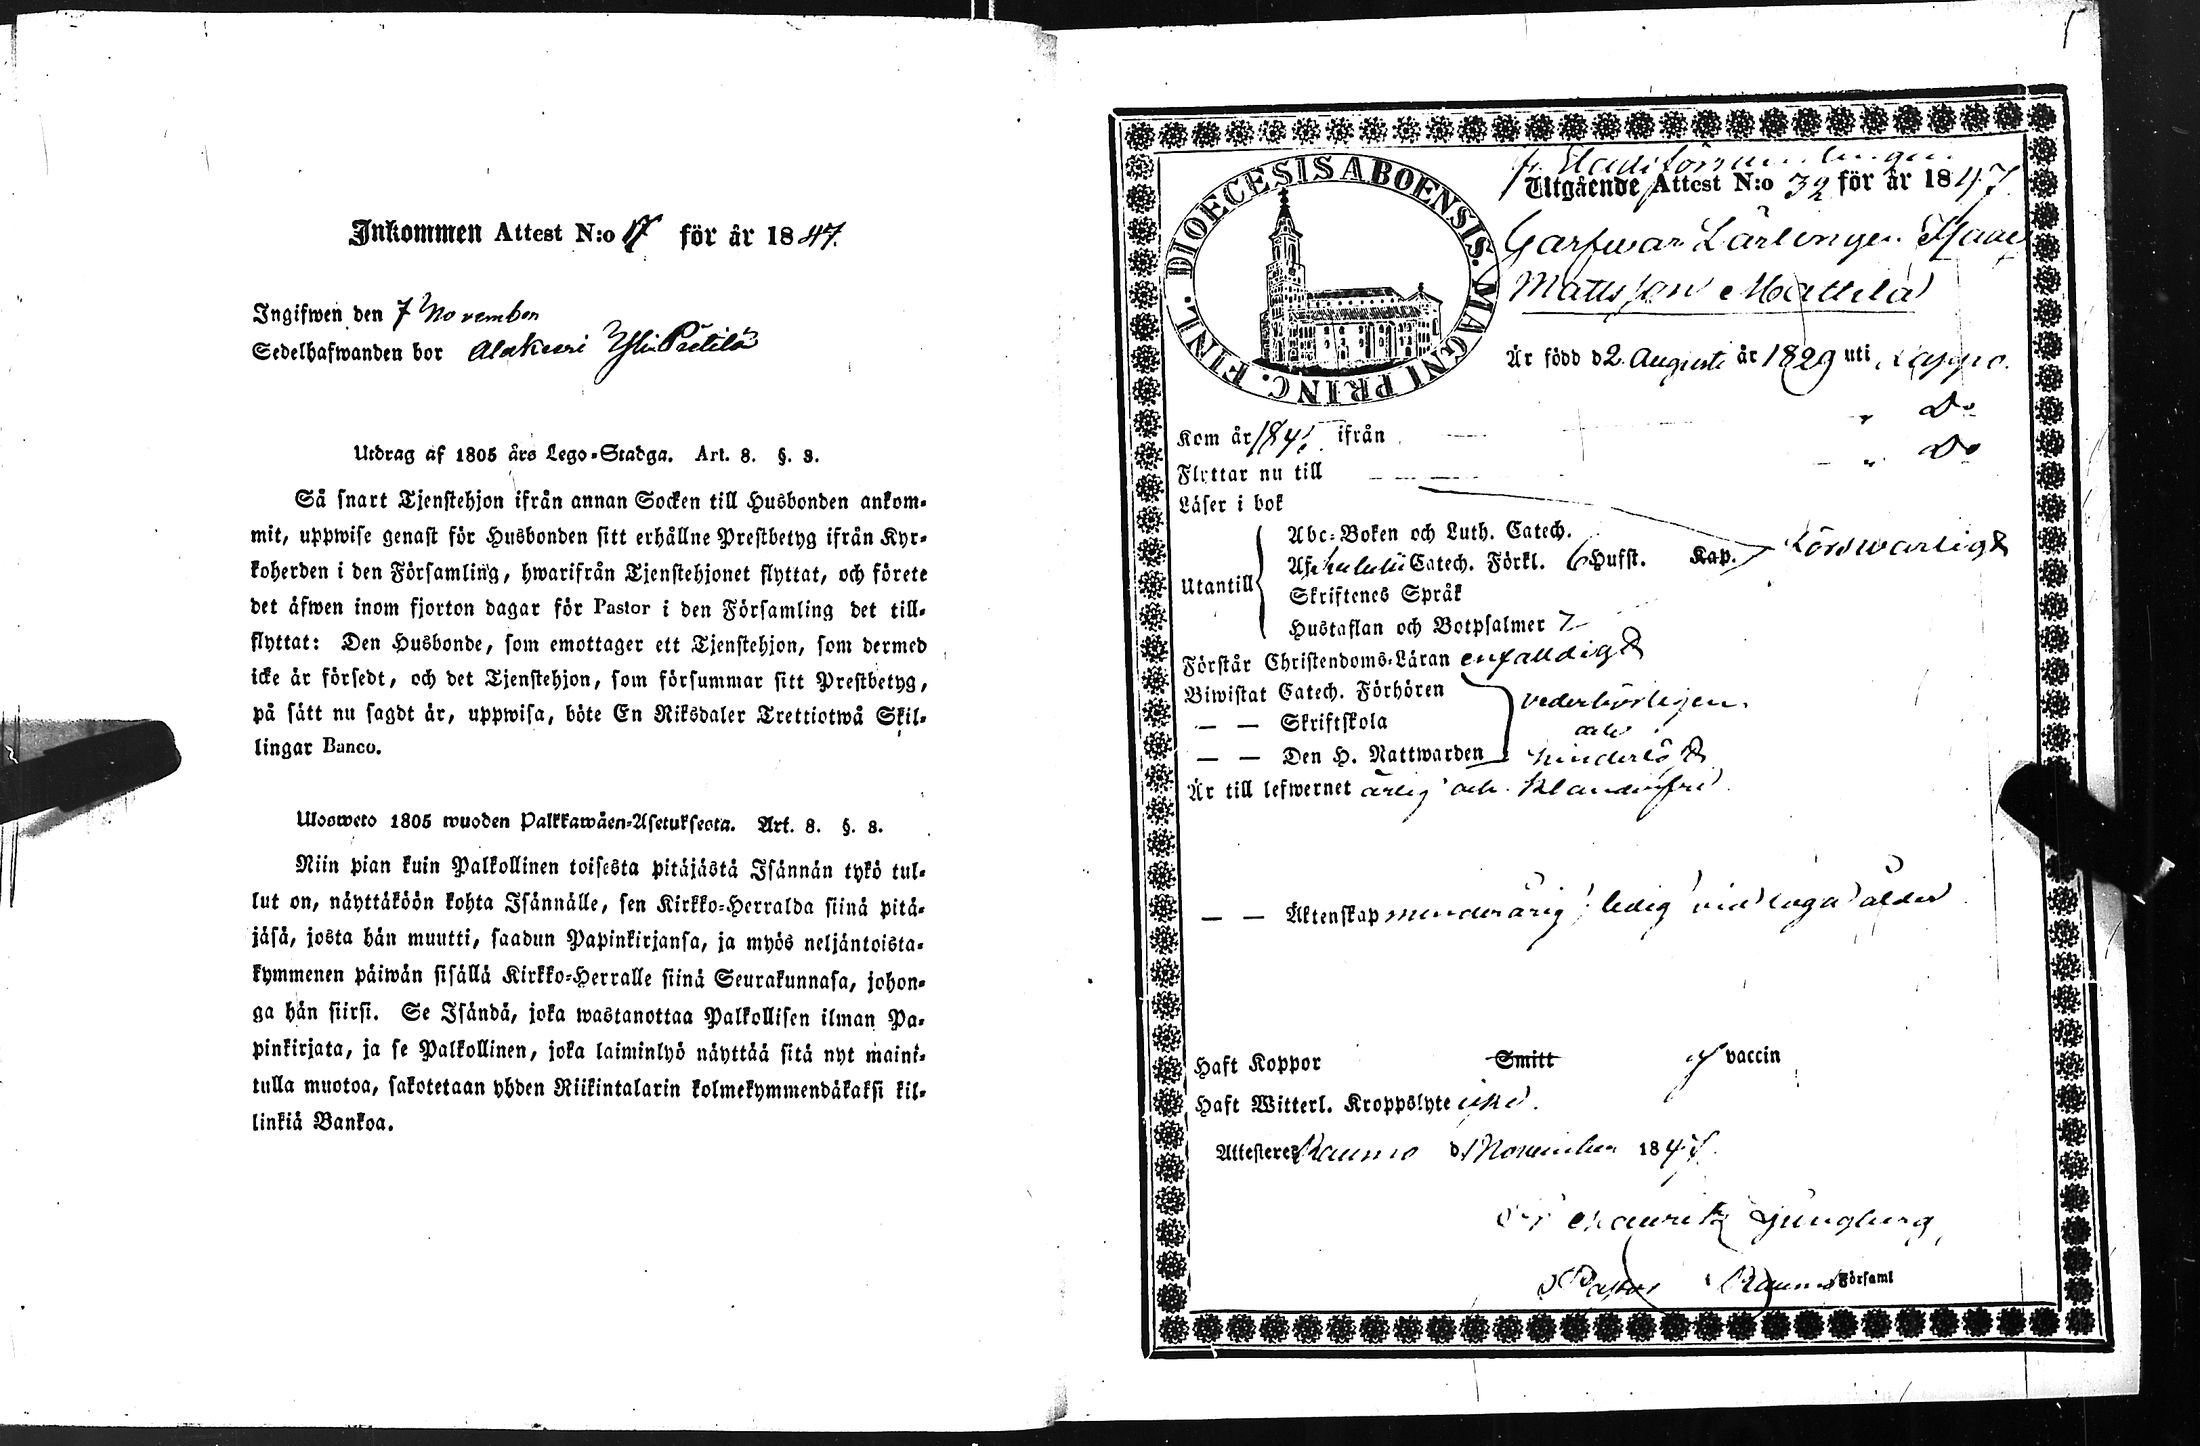 Inkommen Attest N:o 17 för år 1847.
Ingifwen den 7 November
Sedelhafwanden bor Alakuri Yli Pietilä
Utdrag af 1805 års Lego-Stadga. Art. 8. §. 3.
Så snart Tjenstehjon ifrån annan Socken till Husbonden ankom-
mit, uppwise genast för Husbonden sitt erhållne Prestbetyg ifrån Kyr-
koherden i den Församling, hwarifrån Tjenstehjonet flyttat, och förete
det äfwen inom fjorton dagar för Pastor i den Församling det till-
flyttat: Den Husbonde, som emottager ett Tjenstehjon, som dermed
icke är försedt, och det Tjenstehjon, som försummar sitt Prestbetyg,
på sätt nu sagdt är, uppwisa, böte En Riksdaler Trettiotwå Skil-
lingar Banco.
Ulosweto 1805 wuoden Palkkawäen-Asetuksesta. Art. 8. §. 3.
Niin pian kuin Palkollinen toisesta pitäjästä Isännän tykö tul-
lut on, näyttäköön kohta Isännälle, sen Kirkko-Herralda siinä pitä-
jäsä, josta hän muutti, saadun Papinkirjansa, ja myös neljäntoista-
kymmenen päiwän sisällä Kirkko-Herralle siinä Seurakunnasa, johon-
ga hän siirsi. Se Isändä, joka wastanottaa Palkollisen ilman Pa-
pinkirjata, ja se Palkollinen, joka laiminlyö näyttää sitä nyt maini-
tulla muotoa, sakotetaan yhden Riikintalarin kolmekymmendäkaksi kil-
linkiä Bankoa.
DIOECESIS ABOENSIS. MAGNI PRINC. FINL.
fr. Stadsförsamlingen
Utgående Attest N:o 32 för år 1847.
Garfwar Lärlingen Isaac
Mattsson Mattila
Är född d 2 Augusti år 1829 uti Lappo.
Kom år 184 ifrån " Do
Flyttar nu till " Do
Läser i bok
Abc-Boken och Luth. Catech.
Af Catech. Förkl. 6 Hufst. Kap. försvarligt
Utantill
Skriftenes Språk
Hustaflan och Botpsalmer 7
Förstår Christendoms-Läran enfaldigt
Biwistat Catech. Förhören vederbörligen
— — Skriftskola och
— — Den H. Nattwarden hinderlöst
Är till lefwernet ärlig och klanderfri
— — Äktenskap minderårig, ledig vid laga ålder
Haft Koppor Smitt af vaccin
Haft Witterl. Kroppslyte icke.
Attesteres Raumo d 1 November 1847.
Mauritz Ljungberg,
Pastor i Raumo Församl